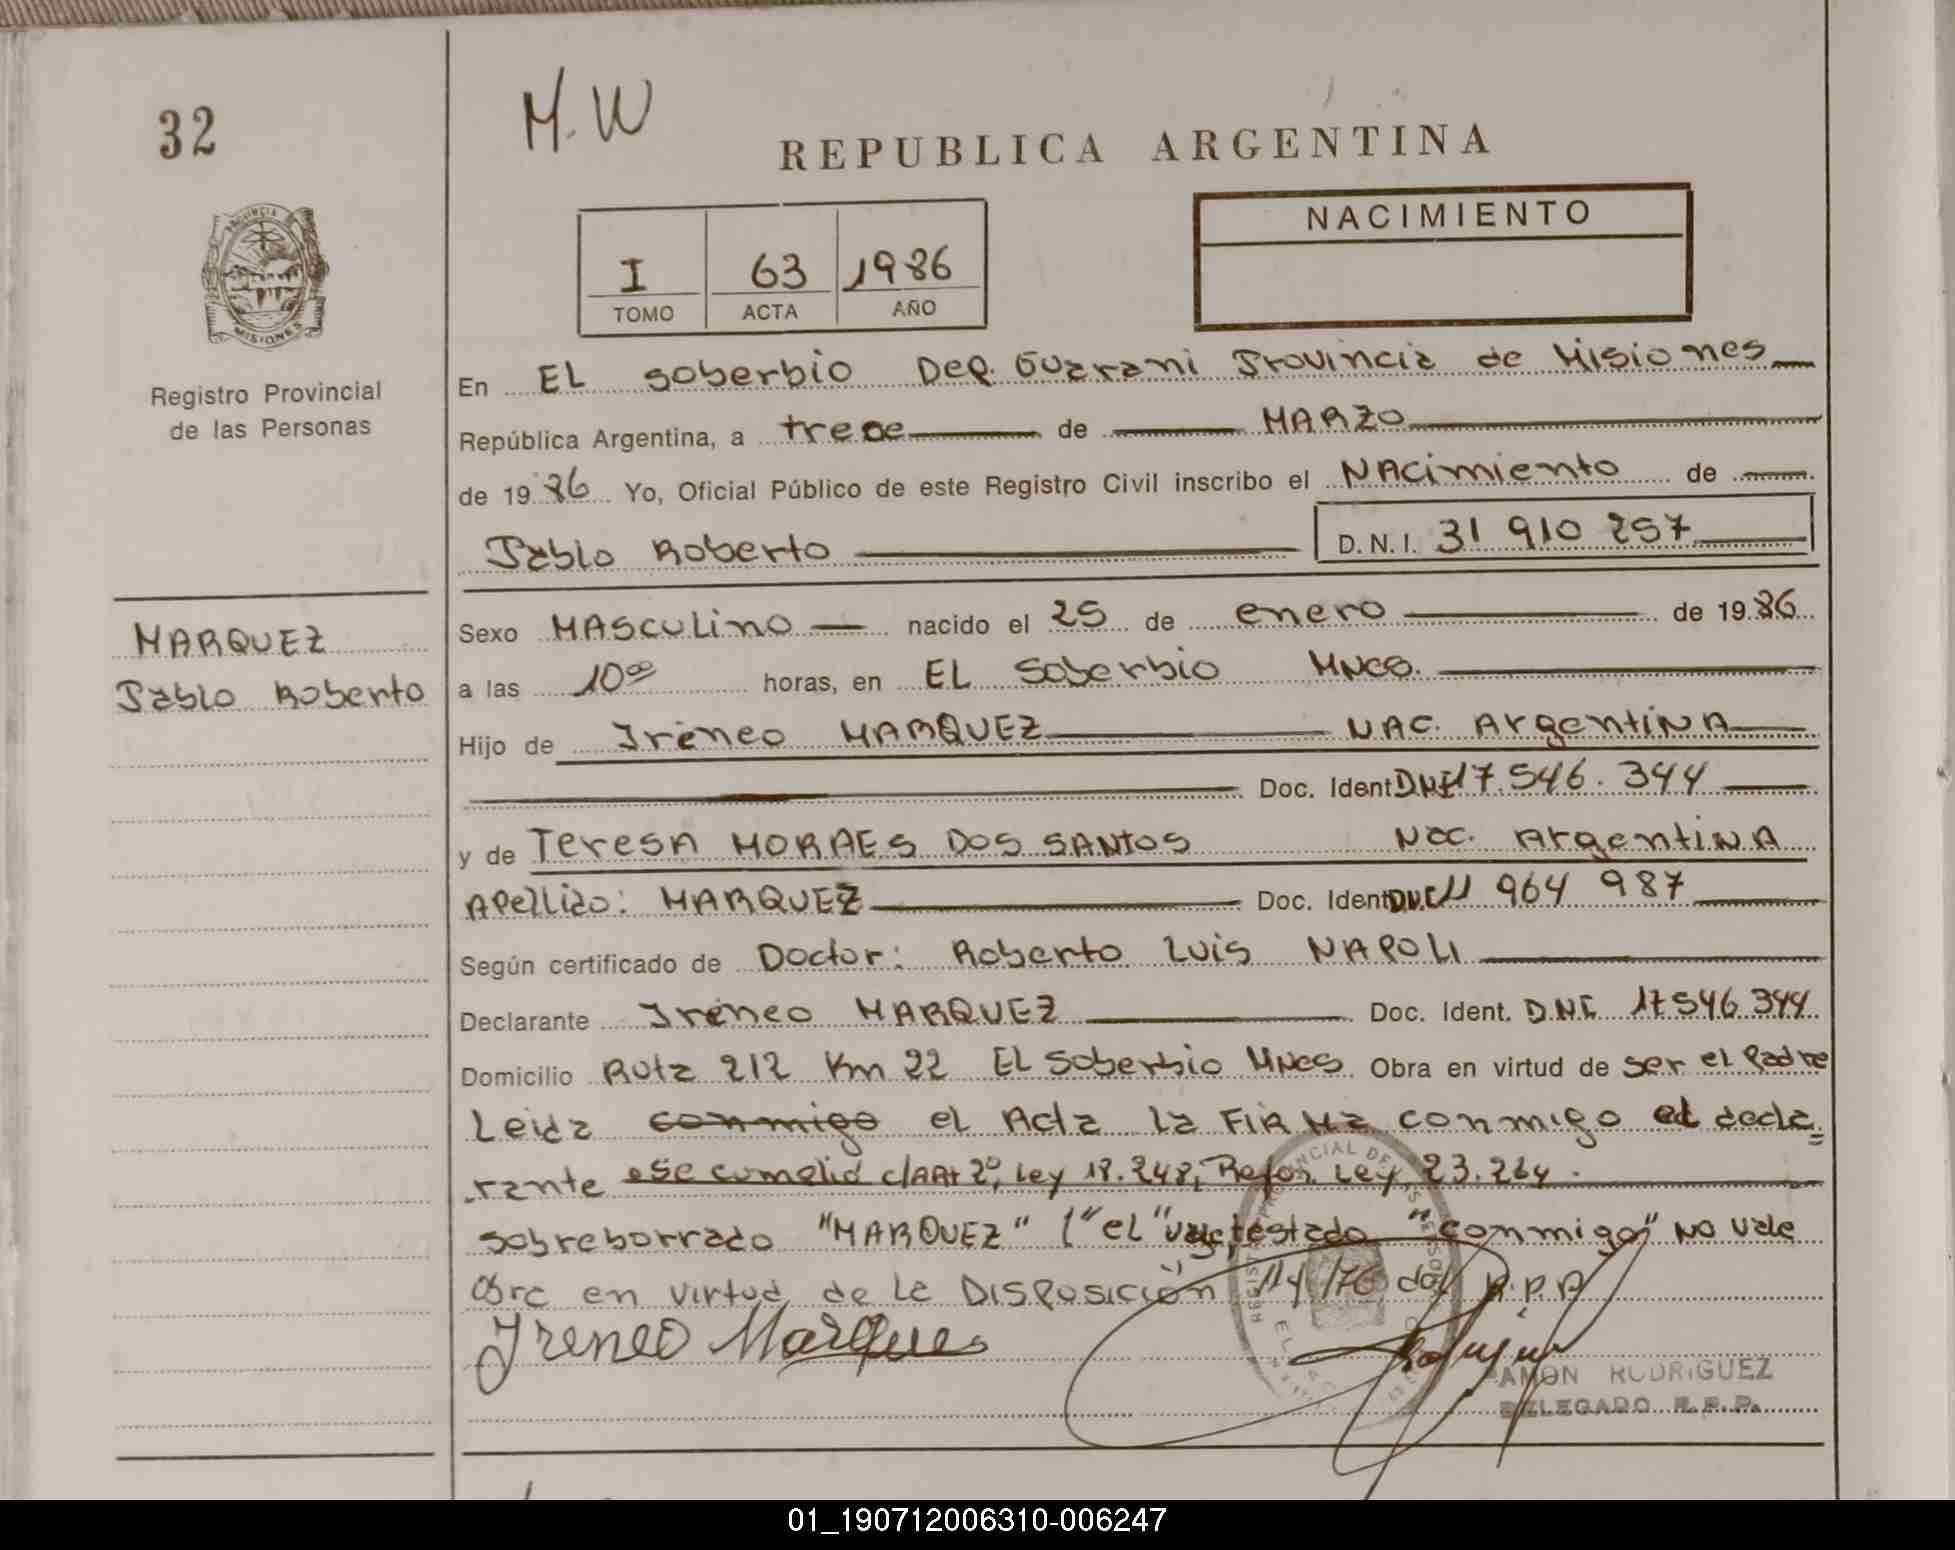 32
M.W
REPUBLICA ARGENTINA
PROVINCIA DE
MISIONES
I 63 1986
TOMO ACTA AÑO
NACIMIENTO
Registro Provincial
de las Personas
MARQUEZ
Pablo Roberto
En EL Soberbio Dep. Guarani Provincia de Misiones
República Argentina, a trece de MARZO
de 1986 Yo, Oficial Público de este Registro Civil inscribo el NAcimiento de
Pablo Roberto D.N.I. 31 910 257
Sexo MAScuLino nacido el 25 de enero de 1986
a las 10⁰⁰ horas, en EL Soberbio Mnes.
Hijo de Ireneo MARQUEZ NAC. ArgentiNA
Doc. Ident DNI 17.546.344
y de Teresa MORAES DOS SANTOS Nac. ArgentiNA
Apellido: MARQUEZ Doc. Ident DNI 11 964 987
Según certificado de Doctor: Roberto Luis NAPOLI
Declarante Ireneo MARQUEZ Doc. Ident. D.N.I. 17 546 344
Domicilio Ruta 212 Km 22 EL Soberbio Mnes Obra en virtud de ser el Padre
Leida conmigo el Acta la FIRMa conmigo el decla
rante Se cumplió c/Art 2º, Ley 18.248, Refor. Ley 23.264.
sobreborrado "MARQUEZ" "el" vale, testado "conmigo" No vale
en virtud de la Disposición 114/76 del R.P.P
Ireneo Marques
RAMON RODRIGUEZ
DELEGADO R.P.P.
01_190712006310-006247